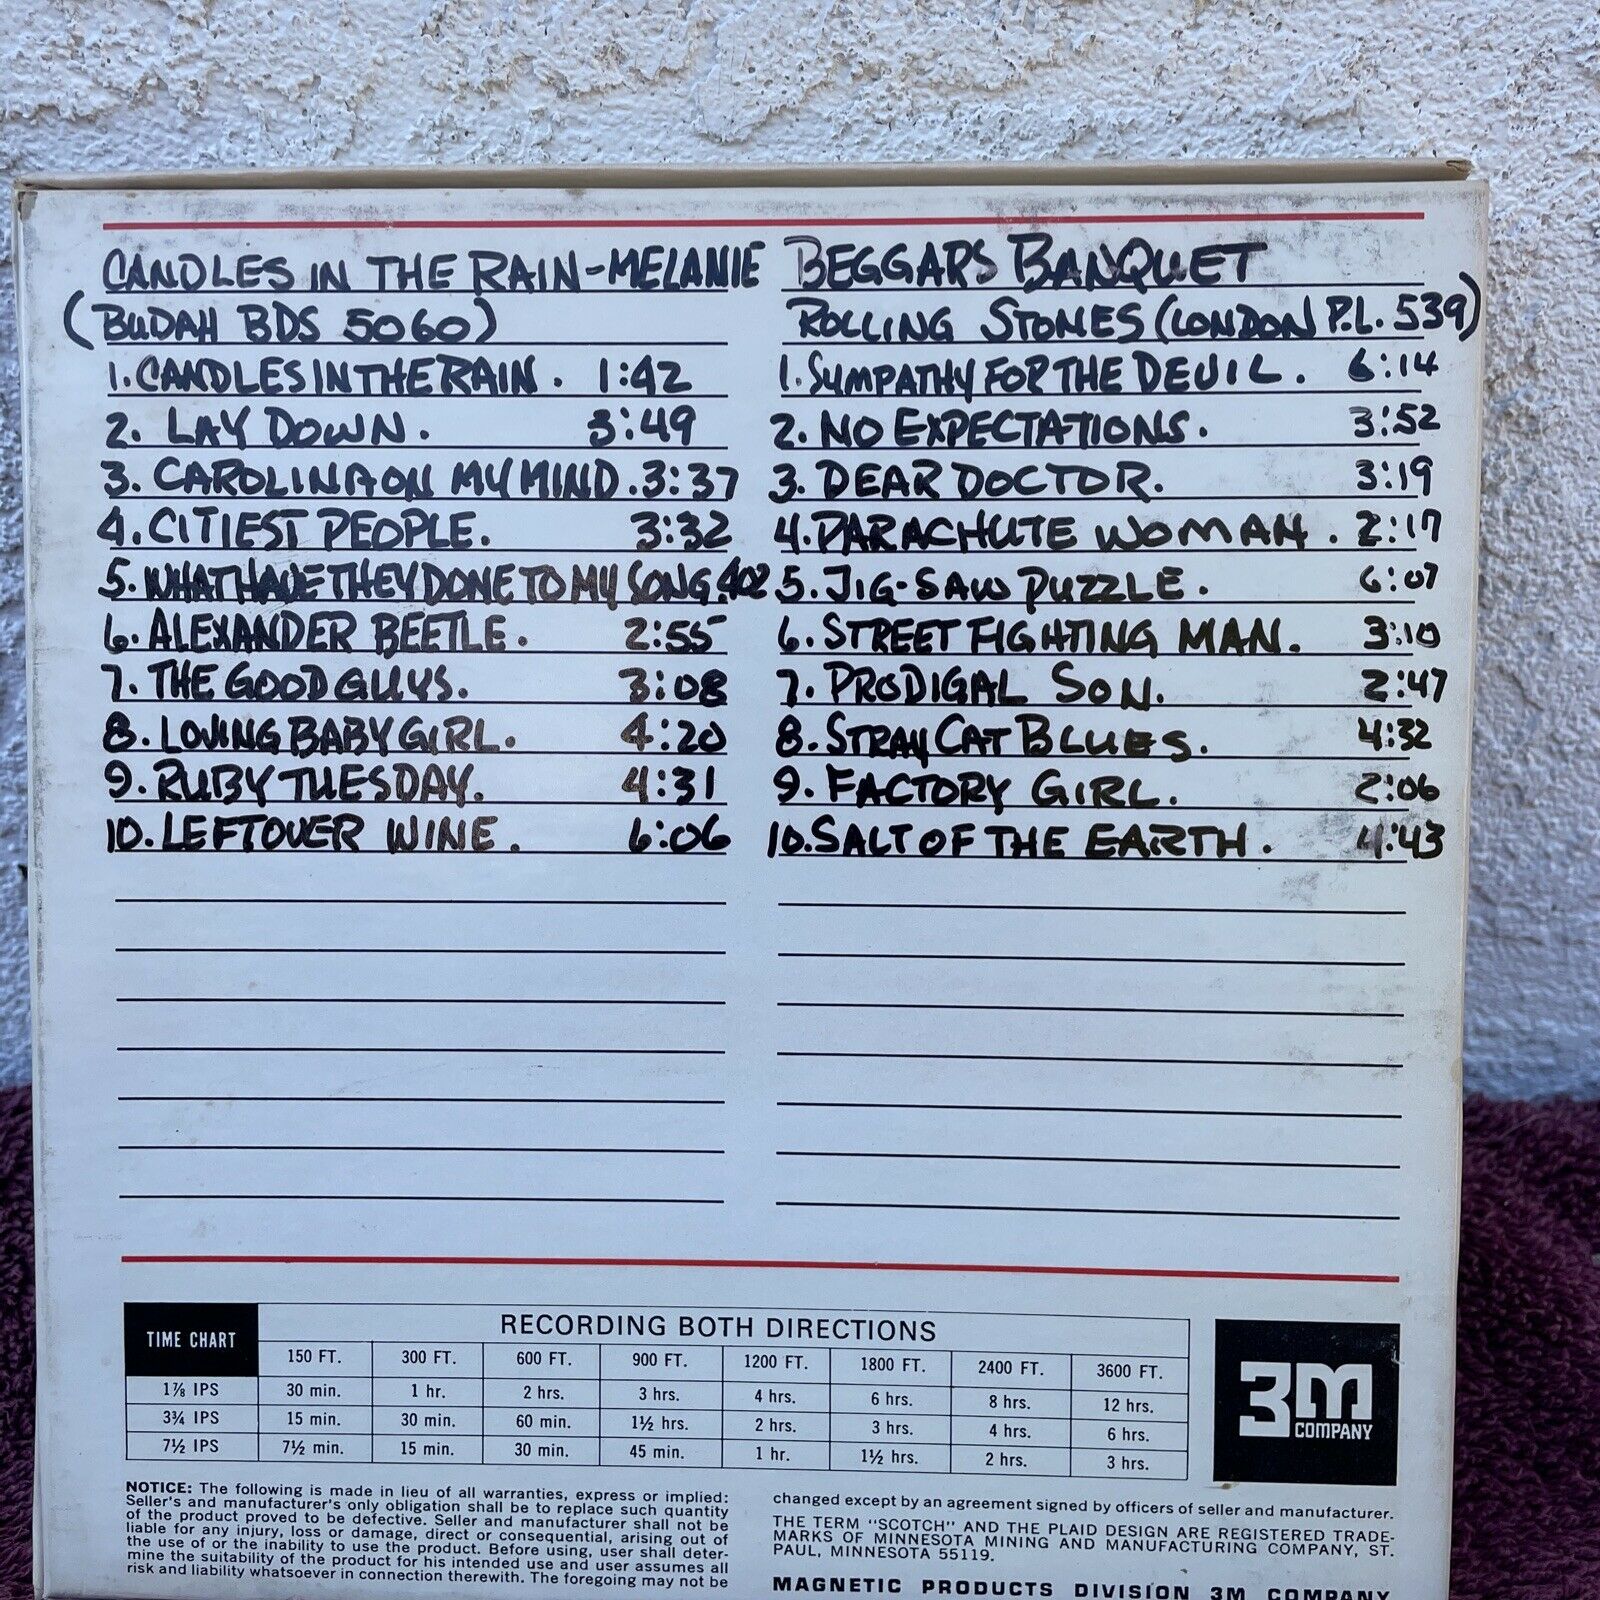 CANDLES IN THE RAIN-MELANIE
(BUDAH BDS 5060)
1. CANDLES IN THE RAIN. 1:42
2. LAY DOWN. 3:49
3. CAROLINA ON MY MIND. 3:37
4. CITIEST PEOPLE. 3:32
5. WHAT HAVE THEY DONE TO MY SONG. 402
6. ALEXANDER BEETLE. 2:55
7. THE GOOD GUYS. 3:08
8. LOVING BABY GIRL. 4:20
9. RUBY TUESDAY. 4:31
10. LEFTOVER WINE. 6:06
BEGGARS BANQUET
ROLLING STONES (LONDON P.L. 539)
1. SUMPATHY FOR THE DEVIL. 6:14
2. NO EXPECTATIONS. 3:52
3. DEAR DOCTOR. 3:19
4. PARACHUTE WOMAN. 2:17
5. JIG-SAW PUZZLE. 6:07
6. STREET FIGHTING MAN. 3:10
7. PRODIGAL SON. 2:47
8. STRAY CAT BLUES. 4:32
9. FACTORY GIRL. 2:06
10. SALT OF THE EARTH. 4:43
TIME CHART
RECORDING BOTH DIRECTIONS
150 FT. 300 FT. 600 FT. 900 FT. 1200 FT. 1800 FT. 2400 FT. 3600 FT.
1⅞ IPS 30 min. 1 hr. 2 hrs. 3 hrs. 4 hrs. 6 hrs. 8 hrs. 12 hrs.
3¾ IPS 15 min. 30 min. 60 min. 1½ hrs. 2 hrs. 3 hrs. 4 hrs. 6 hrs.
7½ IPS 7½ min. 15 min. 30 min. 45 min. 1 hr. 1½ hrs. 2 hrs. 3 hrs.
3M
COMPANY
NOTICE: The following is made in lieu of all warranties, express or implied:
Seller's and manufacturer's only obligation shall be to replace such quantity
of the product proved to be defective. Seller and manufacturer shall not be
liable for any injury, loss or damage, direct or consequential, arising out of
the use of or the inability to use the product. Before using, user shall deter-
mine the suitability of the product for his intended use and user assumes all
risk and liability whatsoever in connection therewith. The foregoing may not be
changed except by an agreement signed by officers of seller and manufacturer.
THE TERM "SCOTCH" AND THE PLAID DESIGN ARE REGISTERED TRADE-
MARKS OF MINNESOTA MINING AND MANUFACTURING COMPANY, ST.
PAUL, MINNESOTA 55119.
MAGNETIC PRODUCTS DIVISION 3M COMPANY